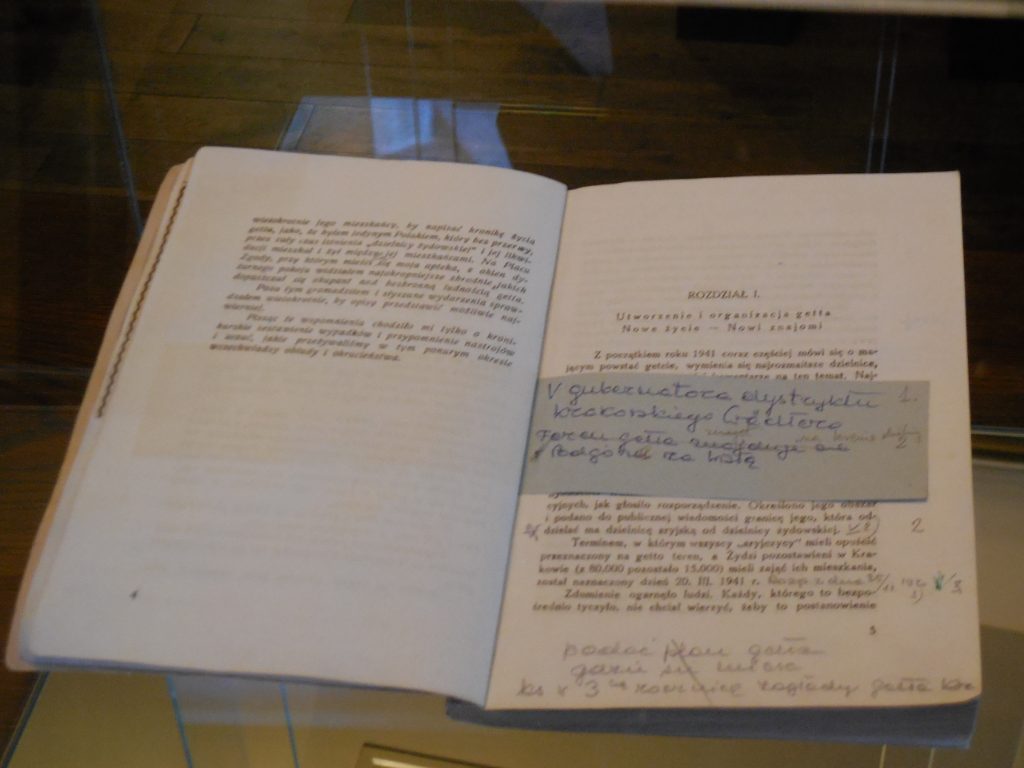 wielokrotnie jego mieszkańcy, by napisać kronikę życia
getta, jako, że byłem jedynym Polakiem, który bez przerwy,
przez cały czas istnienia „dzielnicy żydowskiej" i jej likwi-
dacji mieszkał i żył między jej mieszkańcami. Na Placu
Zgody, przy którym mieści się moja apteka, z okien dy-
żurnego pokoju widziałem najokropniejsze zbrodnie, jakich
dopuszczał się okupant nad bezbronną ludnością getta.
Poza tym gromadziłem i słyszane wydarzenia spraw-
dzałem wielokrotnie, by opisy przedstawić możliwie naj-
wierniej.
Pisząc te wspomnienia chodziło mi tylko o kroni-
karskie zestawienie wypadków i przypomnienie nastrojów
i uczuć, jakie przeżywaliśmy w tym ponurym okresie
wszechwładzy obłudy i okrucieństwa.
4
ROZDZIAŁ I.
Utworzenie i organizacja getta
Nowe życie — Nowi znajomi
Z początkiem roku 1941 coraz częściej mówi się o ma-
jącym powstać getcie, wymienia się najrozmaitsze dzielnice,
komentarze na ten temat. Naj-
V gubernatora dystryktu 1.
krakowskiego (Wächtera
teren getta znajduje się 2
Podgórze za Wisłą
cyjnych, jak głosiło rozporządzenie. Określono jego obszar
i podano do publicznej wiadomości granicę jego, która od-
dzielać ma dzielnicę aryjską od dzielnicy żydowskiej. 2
Terminem, w którym wszyscy „aryjczycy" mieli opuścić
przeznaczony na getto teren, a Żydzi pozostawieni w Kra-
kowie (z 80.000 pozostało 15.000) mieli zająć ich mieszkania,
został naznaczony dzień 20. III. 1941 r. 3
Zdumienie ogarnęło ludzi. Każdy, którego to bezpo-
średnio tyczyło, nie chciał wierzyć, żeby to postanowienie
5
podać plan getta
gdzie się mieści
3 rocznicę zagłady getta